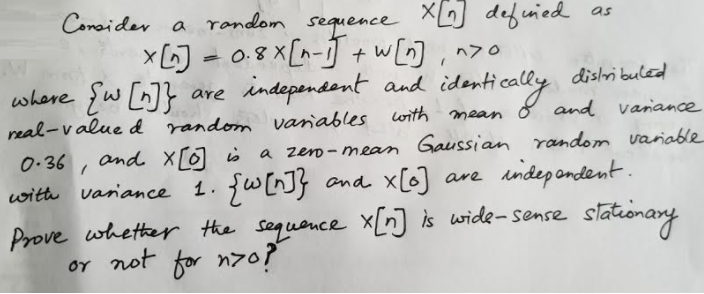 Consider a random sequence X[n] defined as
X[n] = 0.8 X[n-1] + W[n], n>0
where {W[n]} are independent and identically distributed
real-valued random variables with mean 0 and variance
0.36, and X[0] is a zero-mean Gaussian random variable
with variance 1. {W[n]} and X[0] are independent.
Prove whether the sequence X[n] is wide-sense stationary
or not for n>0?